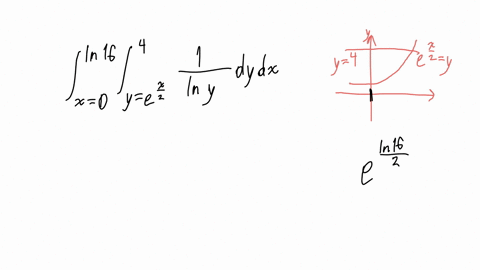 ∫_{x=0}^{ln16} ∫_{y=e^{x/2}}^{4} 1/(ln y) dy dx
y
y=4
e^{x/2}=y
e^{ln16/2}